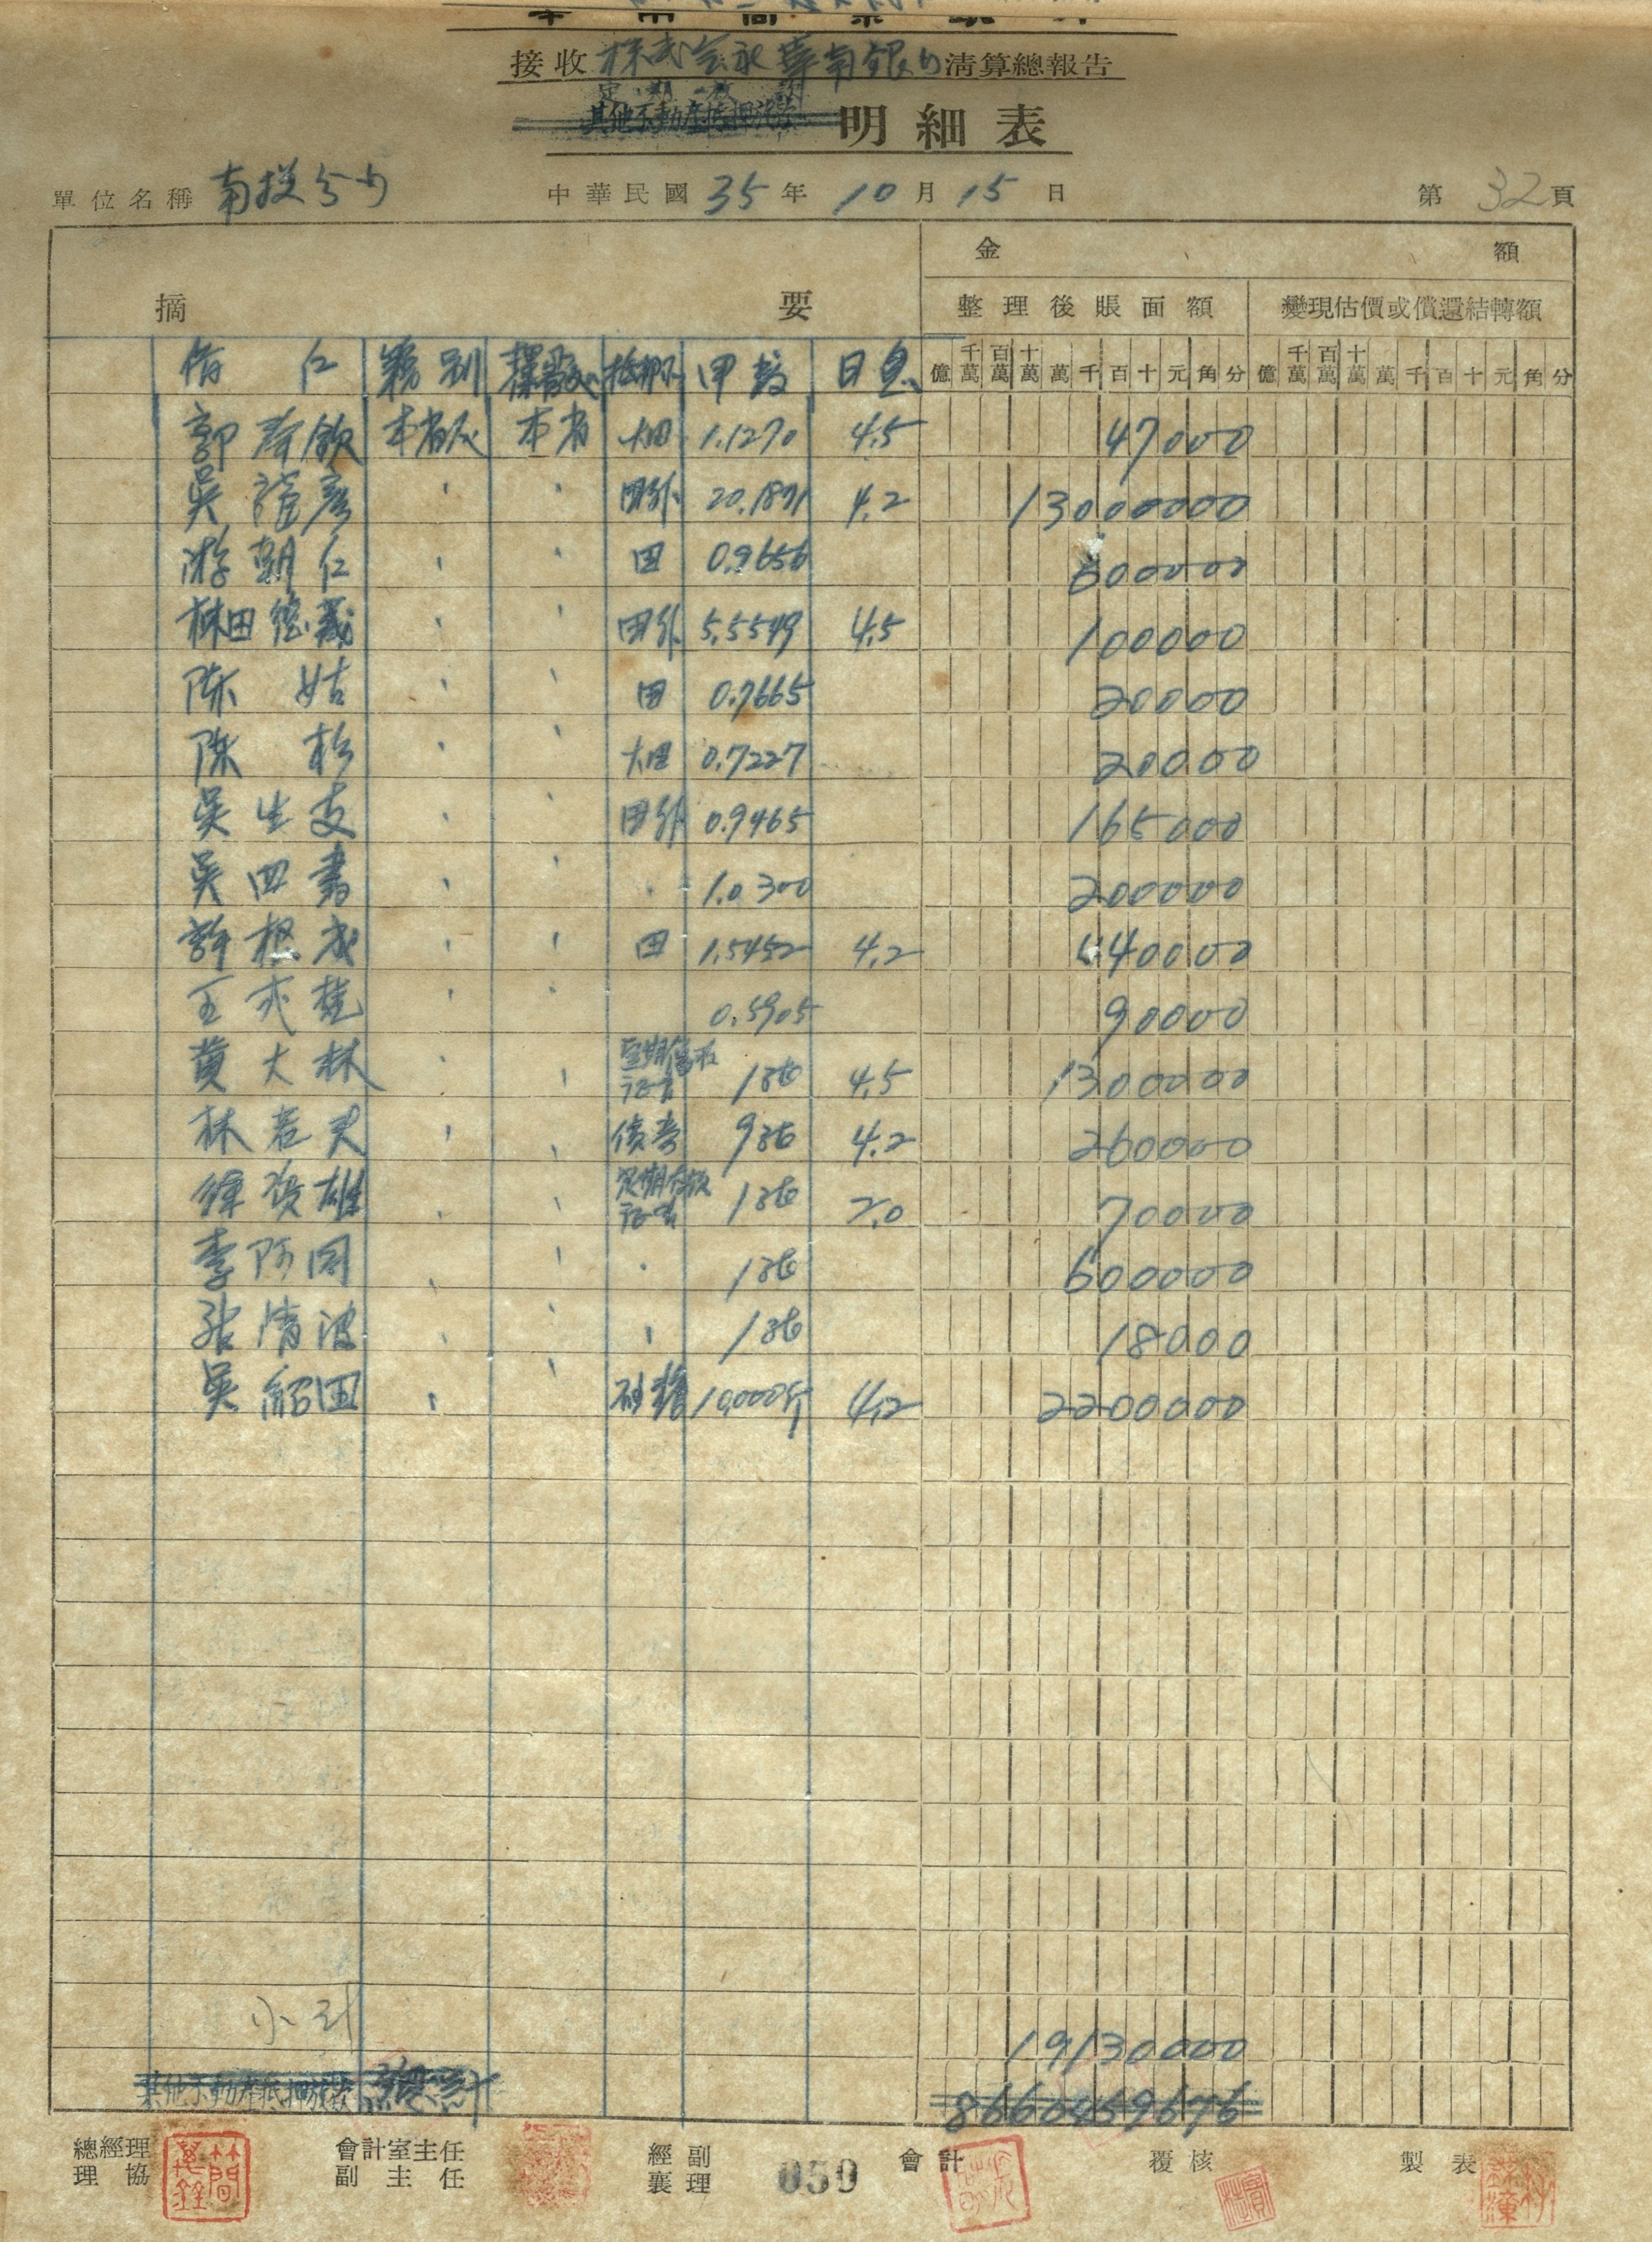 接收 株式会社華南銀行 清算總報告
定期放款
其他不動產抵押放款 明細表
單位名稱 南投分行 中華民國 35 年 10 月 15 日 第 32 頁
金 額
摘 要 整理後賬面額 變現估價或償還結轉額
億 千萬 百萬 十萬 萬 千 百 十 元 角 分 億 千萬 百萬 十萬 萬 千 百 十 元 角 分
種別 甲數 日息
郭 欽 本省人 本省 田 1.1270 4.5 47000
吳 彥 〃 〃 田外 20.1871 4.2 13000000
游朝仁 〃 〃 田 0.9656 600000
林田德義 〃 〃 田外 5.5549 4.5 100000
陳姑 〃 〃 田 0.7665 20000
陳松 〃 〃 田 0.7227 20000
吳生支 〃 〃 田外 0.9465 165000
吳四書 〃 〃 〃 1.0300 200000
許根成 〃 〃 田 1.5452 4.2 440000
王 〃 〃 0.5905 90000
黃大林 〃 〃 1張 4.5 1300000
林 〃 〃 債券 9張 4.2 260000
徐 雄 〃 〃 定期存款證書 1張 2.0 70000
李阿同 〃 〃 〃 1張 600000
張清波 〃 〃 〃 1張 18000
吳 田 〃 〃 砂糖 10,000斤 4.2 2200000
小計 19130000
其他不動產抵押放款 總計 8660459676
總經理 協理 會計室主任 副主任 經副襄理 050 會計 覆核 製表